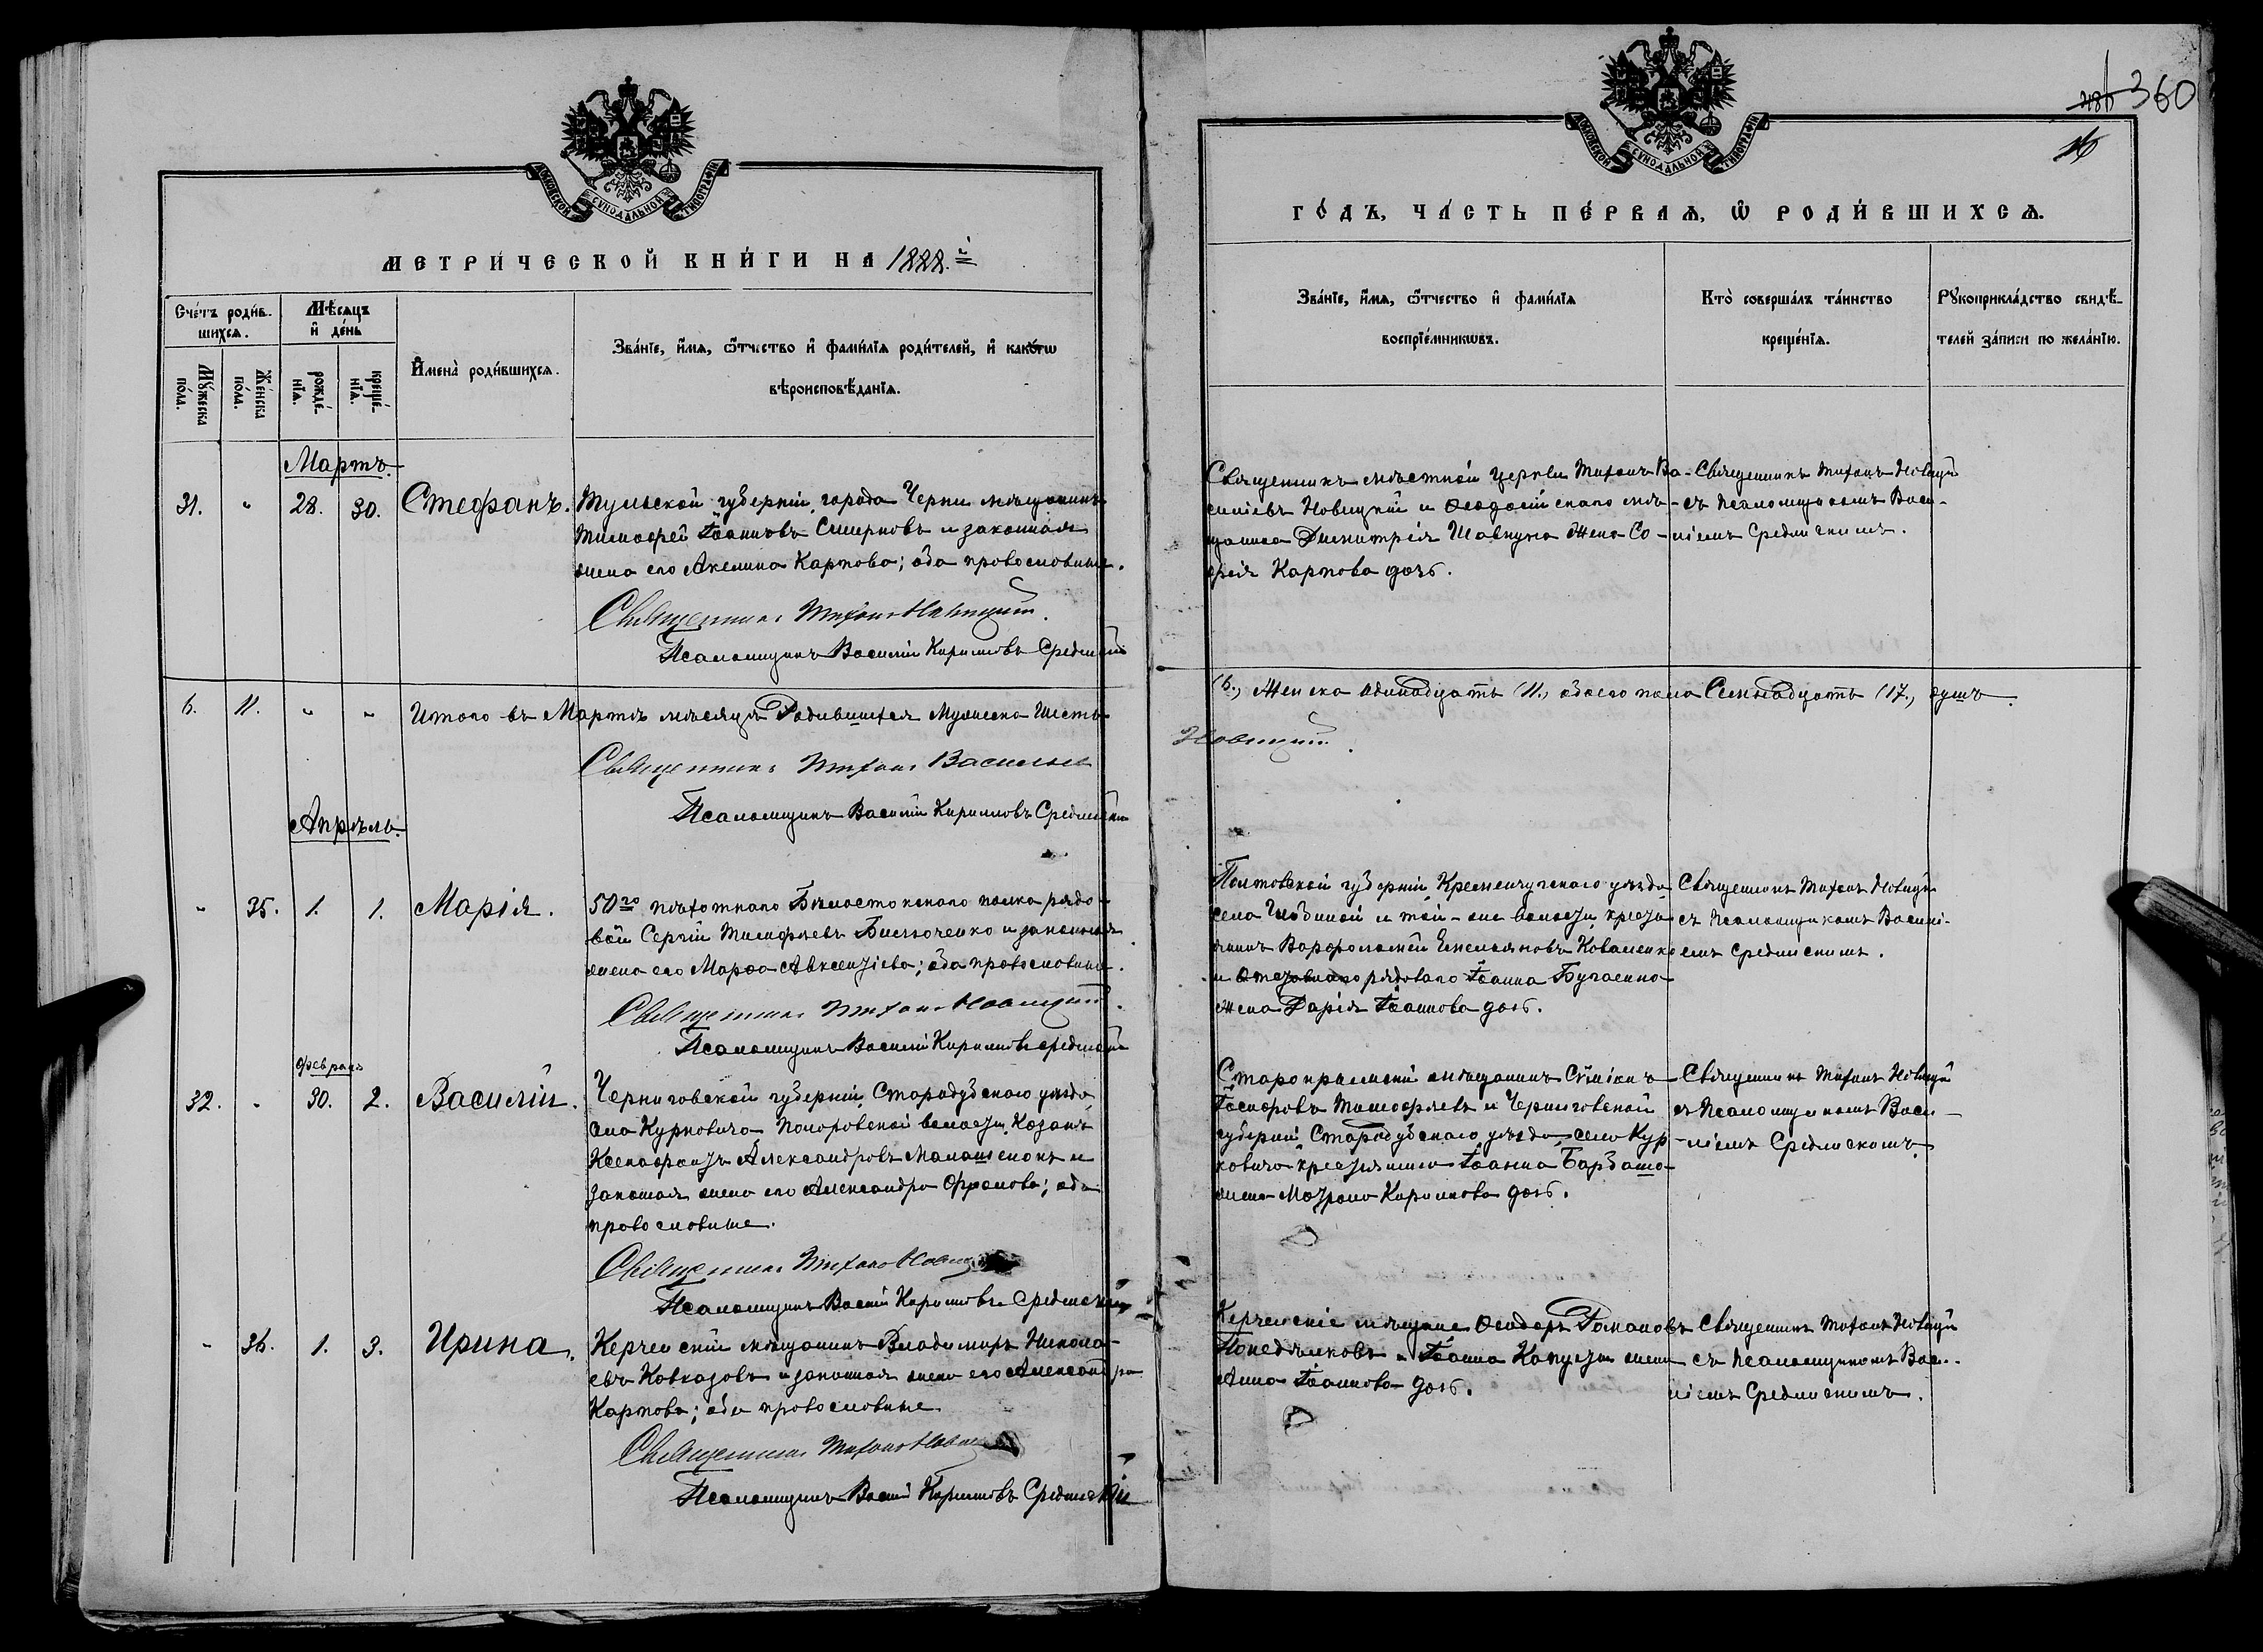 МОСКОВСКОЙ СУНОДАЛЬНОЙ ТИПОГРАФІИ
МЕТРИ́ЧЕСКОЙ КНИ́ГИ НА 1888.й
Сче́тъ роди́в-
шихсѧ.
Мѣ́сѧцъ
и҆ де́нь
Мꙋ́жеска
по́ла.
Же́нска
по́ла.
рожде́-
нїѧ.
креще́-
нїѧ.
И҆мена̀ роди́вшихсѧ.
Зва́нїе, и҆́мѧ, ѻ҆́тчество и҆ фами́лїѧ роди́телей, и҆ како́гѡ
вѣроисповѣ́данїѧ.
Мартъ.
31. " 28. 30. Стефанъ.
Тульской губерніи, города Черни мѣщанинъ
Тимофей Іоанновъ Смирновъ и законная
жена его Акелина Карпова; оба православные.
Священникъ Тихонъ Новицкій.
Псаломщикъ Василій Кириловъ Срединскій
6. 11. " " Итого въ Мартѣ мѣсяцѣ Родившихся Мужеска Шесть
Священникъ Тихонъ Васильевъ
Псаломщикъ Василій Кирилловъ Срединскій
Апрѣль.
" 35. 1. 1. Марія.
50го пѣхотнаго Бѣлостокскаго полка рядо-
вой Сергій Тимофѣевъ и законная
жена его Марѳа Авксентіева; оба православные.
Священникъ Тихонъ Новицкій.
Псаломщикъ Василій Кириловъ Срединскій
Февраль
32. " 30. 2. Василій.
Черниговской губерніи, Стародубскаго уѣзда
села Курковичъ волости, Козакъ
Ксенофонтъ Александровъ и
законная жена его Александра; оба
православные.
Священникъ Тихонъ Новицкій
Псаломщикъ Василій Кириловъ Срединскій
" 36. 1. 3. Ирина.
Керченскій мѣщанинъ Владимиръ Никола-
евъ Кавказовъ и законная жена его Александра
Карпова; оба православные
Священникъ Тихонъ Новицкій
Псаломщикъ Василій Кириловъ Срединскій
360
МОСКОВСКОЙ СУНОДАЛЬНОЙ ТИПОГРАФІИ
ГО́ДЪ, ЧА́СТЬ ПЕ́РВАѦ, Ѡ҆ РОДИ́ВШИХСѦ.
Зва́нїе, и҆́мѧ, ѻ҆́тчество и҆ фами́лїѧ
воспрїе́мникѡвъ.
Кто̀ соверша́лъ та́инство
креще́нїѧ.
Рꙋкоприкла́дство свидѣ́-
телей за́писи по жела́нїю.
Священникъ мѣстной церкви Тихонъ Ва-
силіевъ Новицкій и Ѳеодосійскаго мѣ-
щанина Димитрія Шавкуна жена Со-
фія Карпова дочь.
Священникъ Тихонъ Новицкій
съ псаломщикомъ Васи-
ліемъ Средински мъ.
(6.) Женска одинадцать (11.) обоего пола Семнадцать (17.) душъ.
Новицкій.
Полтавской губерніи, Кременчугскаго уѣзда
села и той-же волости, кресть
янинъ Варфоломей Емельяновъ Коваленко
и рядоваго Іоанна Бугаенко
жена Дарія Іоаннова дочь.
Священникъ Тихонъ Новицкій
съ Псаломщикомъ Василі-
емъ Средински мъ.
Старокрымскій мѣщанинъ Сѵмеонъ
Іосифовъ Тимофѣевъ и Черниговской
губерніи, Стародубскаго уѣзда, села Кур
ковичъ крестьянина Іоанна
жена Кирилова дочь.
Священникъ Тихонъ Новицкій
съ Псаломщикомъ Васи-
ліемъ Средински мъ.
Керченскіе мѣщане Ѳеодоръ Романовъ
Понедѣлковъ и Іоанна жена
Анна Іоаннова дочь.
Священникъ Тихонъ Новицкій
съ Псаломщикомъ Васи-
ліемъ Средински мъ.